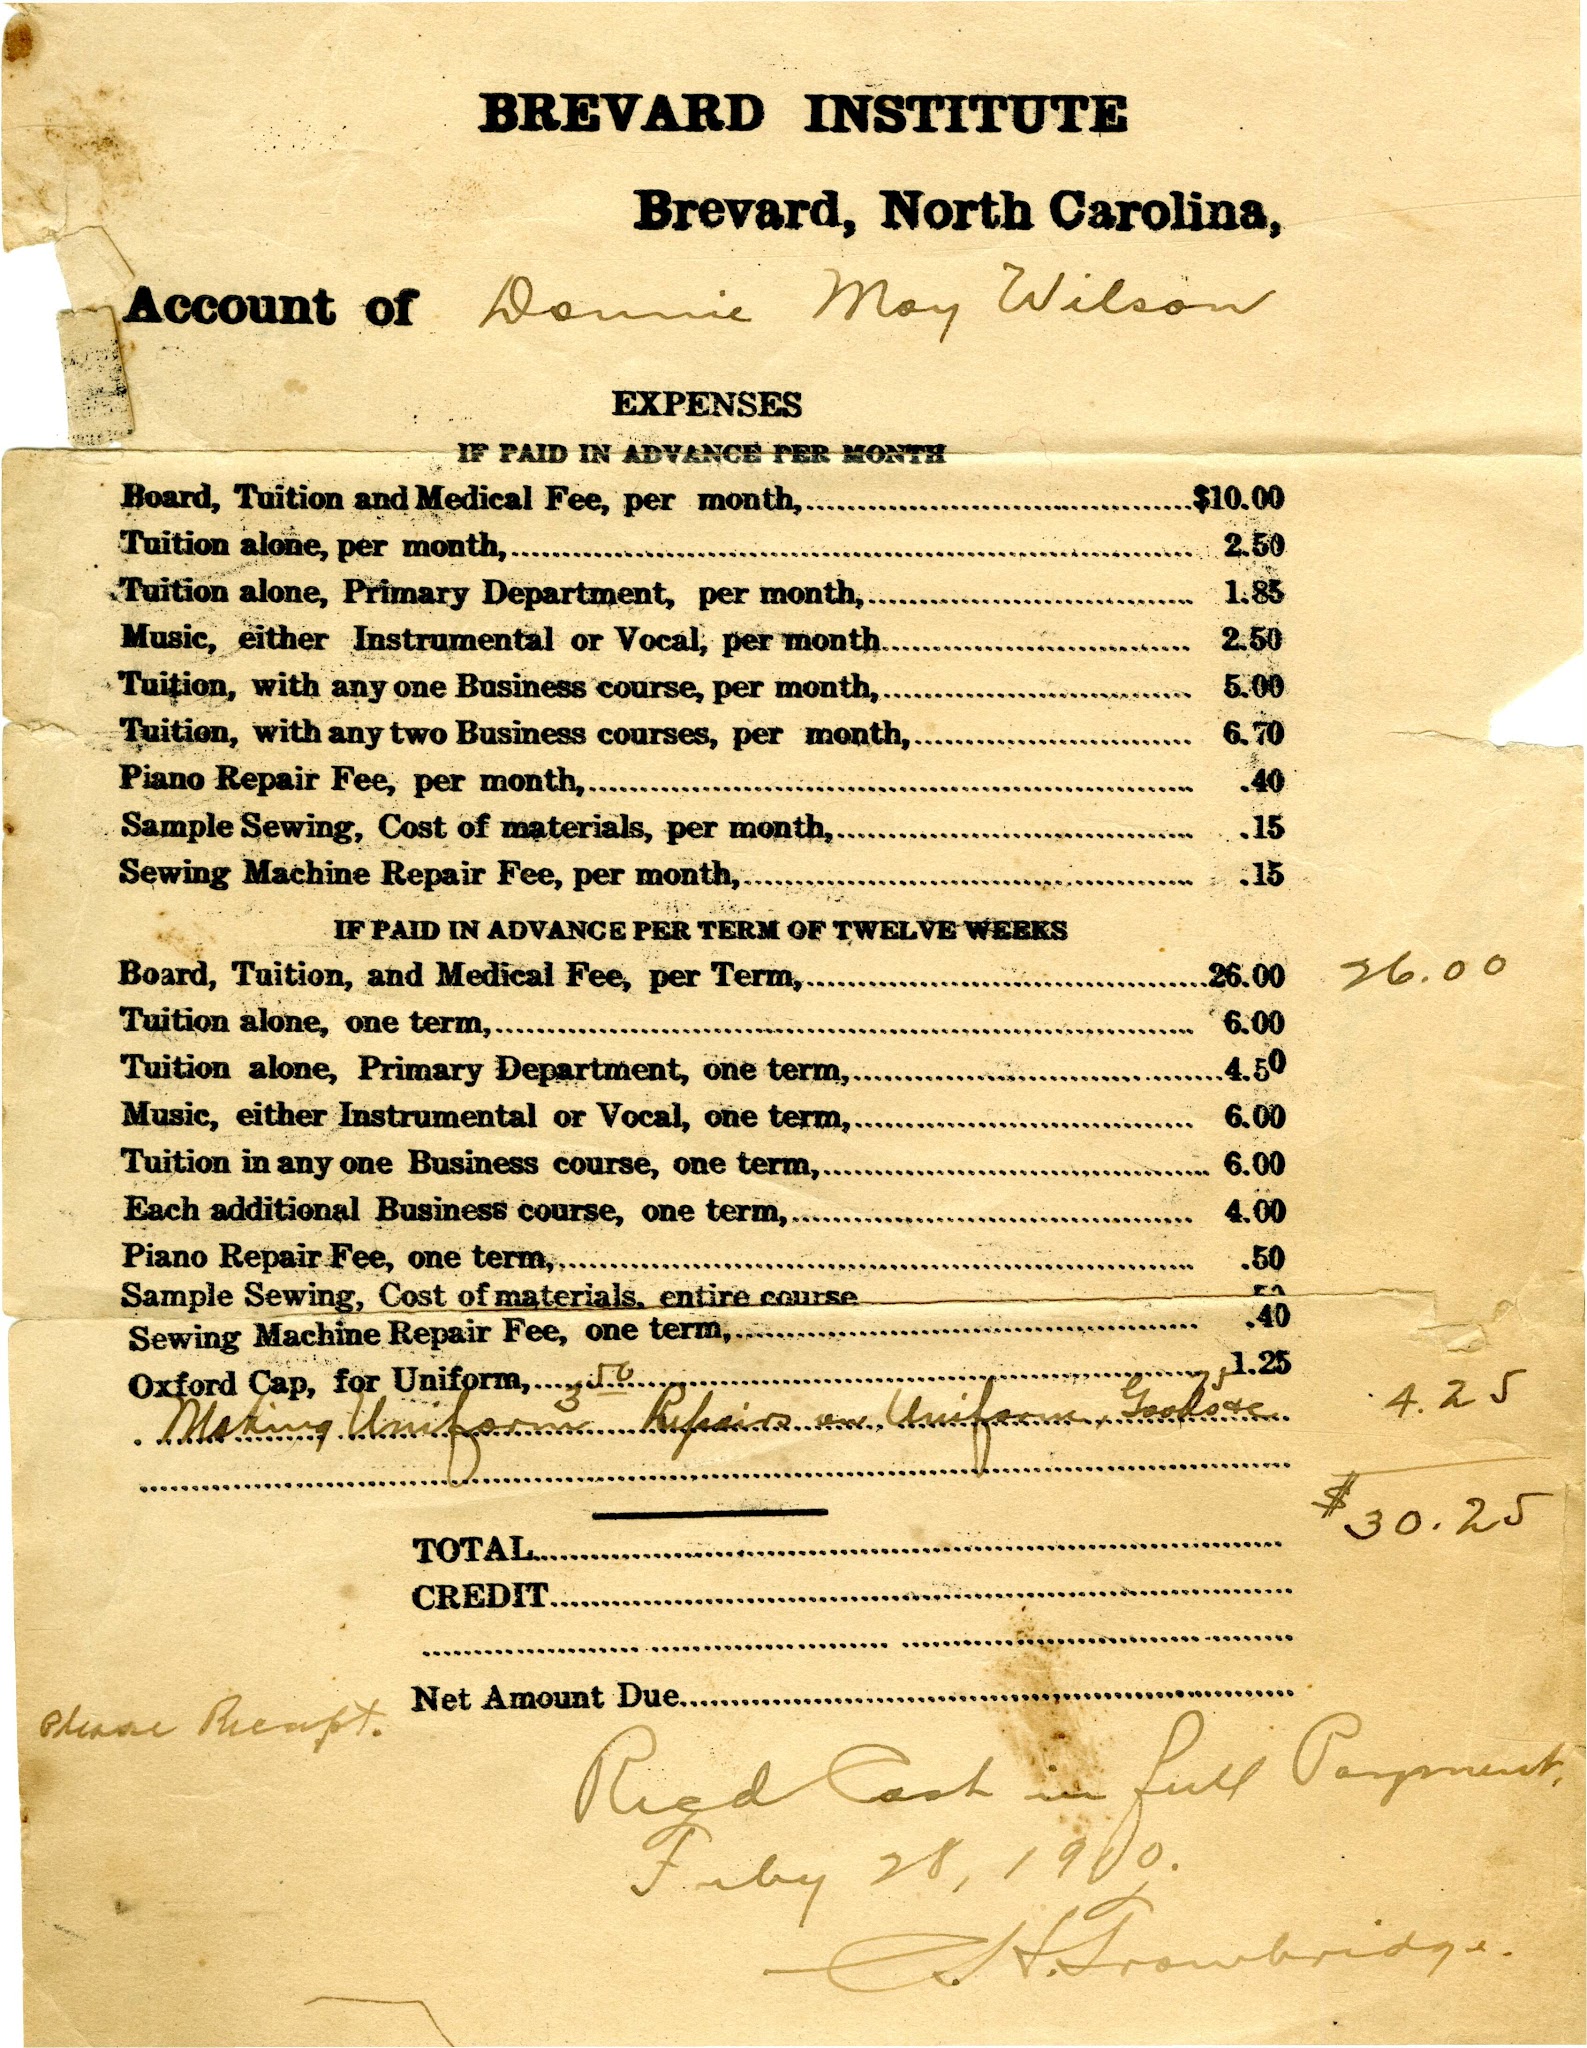 BREVARD INSTITUTE
Brevard, North Carolina,
Account of Donnie May Wilson
EXPENSES
IF PAID IN ADVANCE PER MONTH
Board, Tuition and Medical Fee, per month, $10.00
Tuition alone, per month, 2.50
Tuition alone, Primary Department, per month, 1.85
Music, either Instrumental or Vocal, per month 2.50
Tuition, with any one Business course, per month, 5.00
Tuition, with any two Business courses, per month, 6.70
Piano Repair Fee, per month, .40
Sample Sewing, Cost of materials, per month, .15
Sewing Machine Repair Fee, per month, .15
IF PAID IN ADVANCE PER TERM OF TWELVE WEEKS
Board, Tuition, and Medical Fee, per Term, 26.00 26.00
Tuition alone, one term, 6.00
Tuition alone, Primary Department, one term, 4.50
Music, either Instrumental or Vocal, one term, 6.00
Tuition in any one Business course, one term, 6.00
Each additional Business course, one term, 4.00
Piano Repair Fee, one term, .50
Sample Sewing, Cost of materials, entire course 50
Sewing Machine Repair Fee, one term, .40
Oxford Cap, for Uniform, 1.25
3 50
Making Uniform Repairs on Uniform, Goods &c 4.25
$30.25
TOTAL
CREDIT
Net Amount Due
Please Receipt.
Recd Cash in full Payment,
Feby 28, 1910.
Trowbridge.